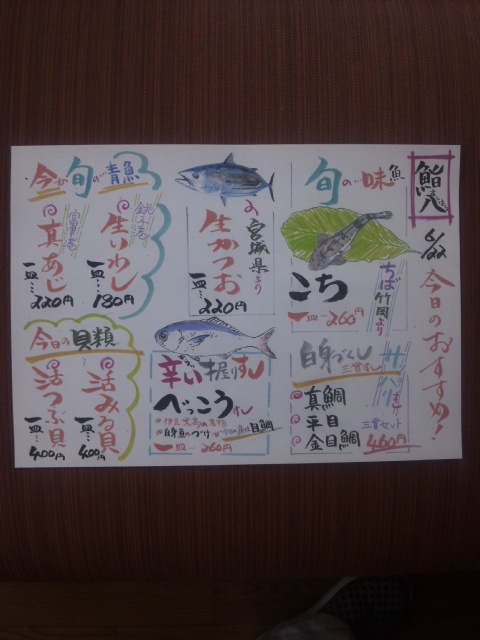 鮨八
6/22
今日のおすすめ!
旬の一味魚
ちば竹岡より
こち
一皿…260円
白身づくし
三貫すし
サッパリ
三貫セット
真鯛
平目
金目鯛
460円
宮城県より
生かつお
一皿…220円
辛い握りすし
べっこうすし
自身魚のづけ
目鯛
一皿…260円
今が旬の青魚
銚子産
生いわし
一皿…180円
真あじ
一皿…220円
今日の貝類
活みる貝
一皿…400円
活つぶ貝
一皿…400円